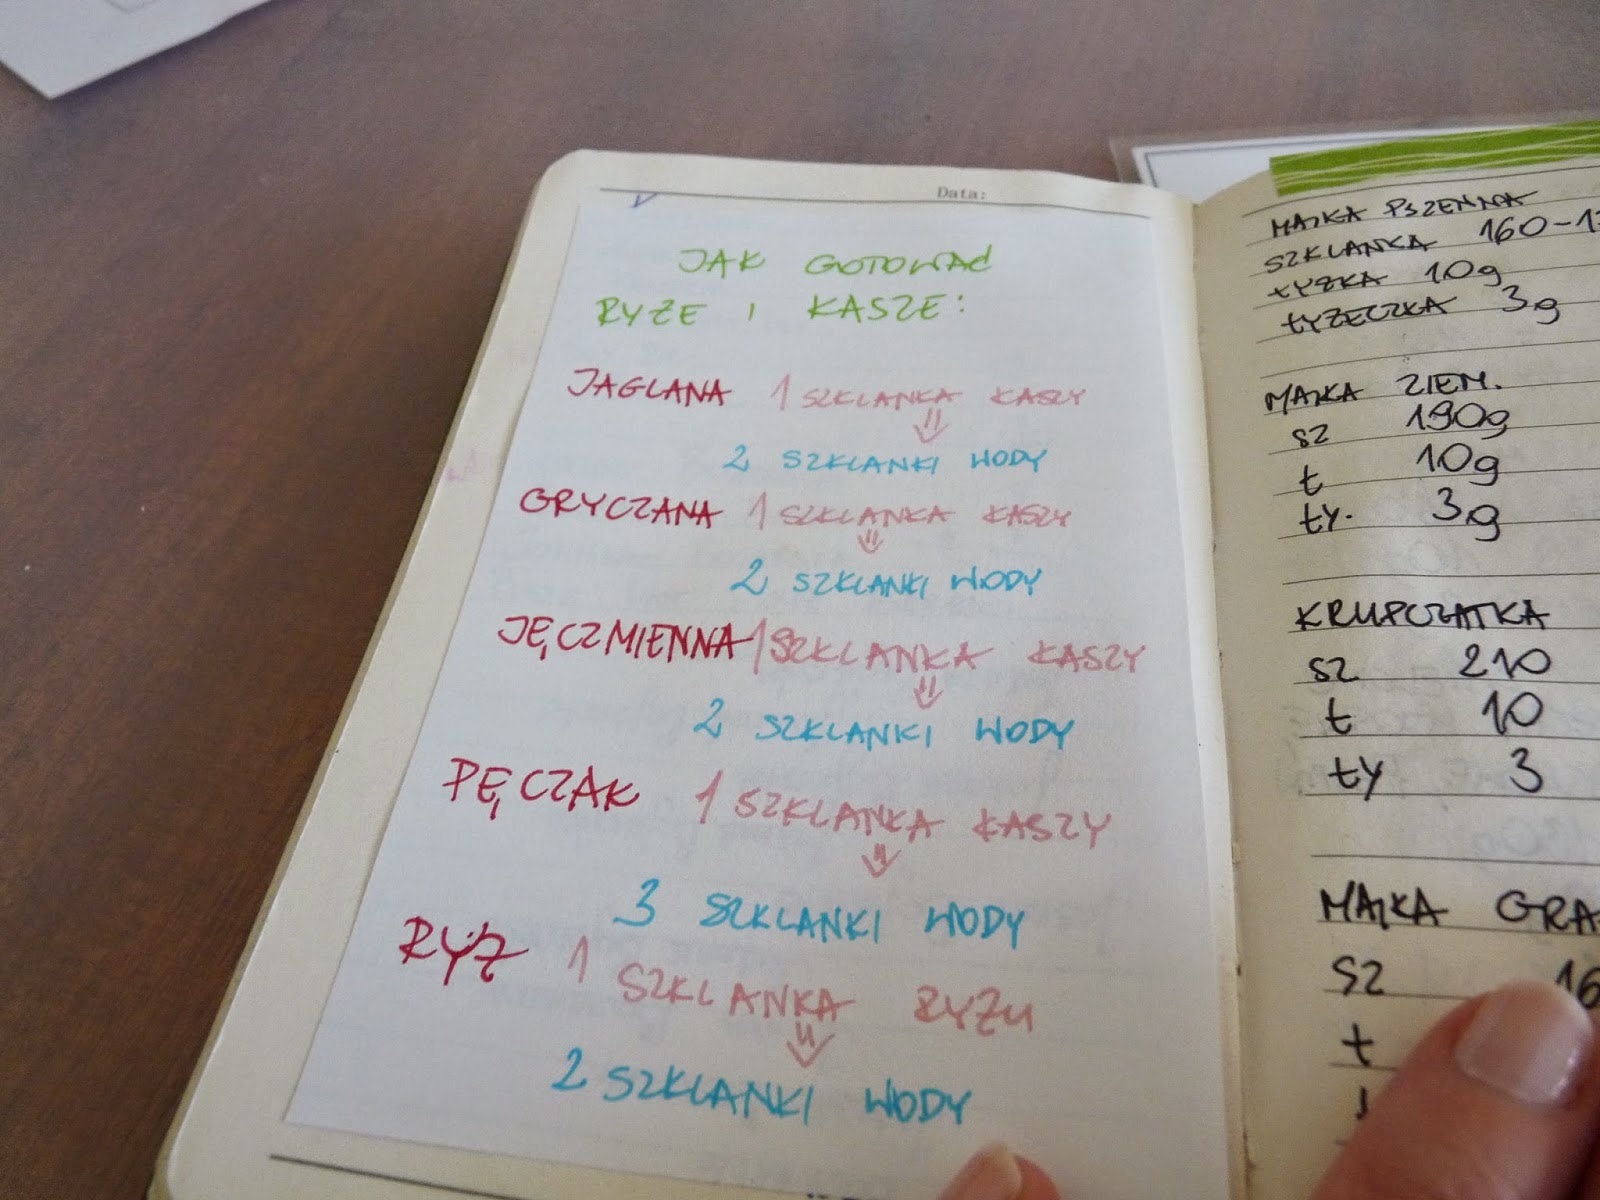 Data:
JAK GOTOWAĆ
RYŻE I KASZE:
JAGLANA 1 SZKLANKA KASZY
2 SZKLANKI WODY
GRYCZANA 1 SZKLANKA KASZY
2 SZKLANKI WODY
JĘCZMIENNA 1 SZKLANKA KASZY
2 SZKLANKI WODY
PĘCZAK 1 SZKLANKA KASZY
3 SZKLANKI WODY
RYŻ 1 SZKLANKA RYŻU
2 SZKLANKI WODY
MĄKA PSZENNA
SZKLANKA 160-1
ŁYŻKA 10g
ŁYŻECZKA 3g
MĄKA ZIEM.
SZ 190g
Ł 10g
ŁY. 3g
KRUPCZATKA
SZ 210
Ł 10
ŁY 3
MĄKA GRA
SZ 16
Ł